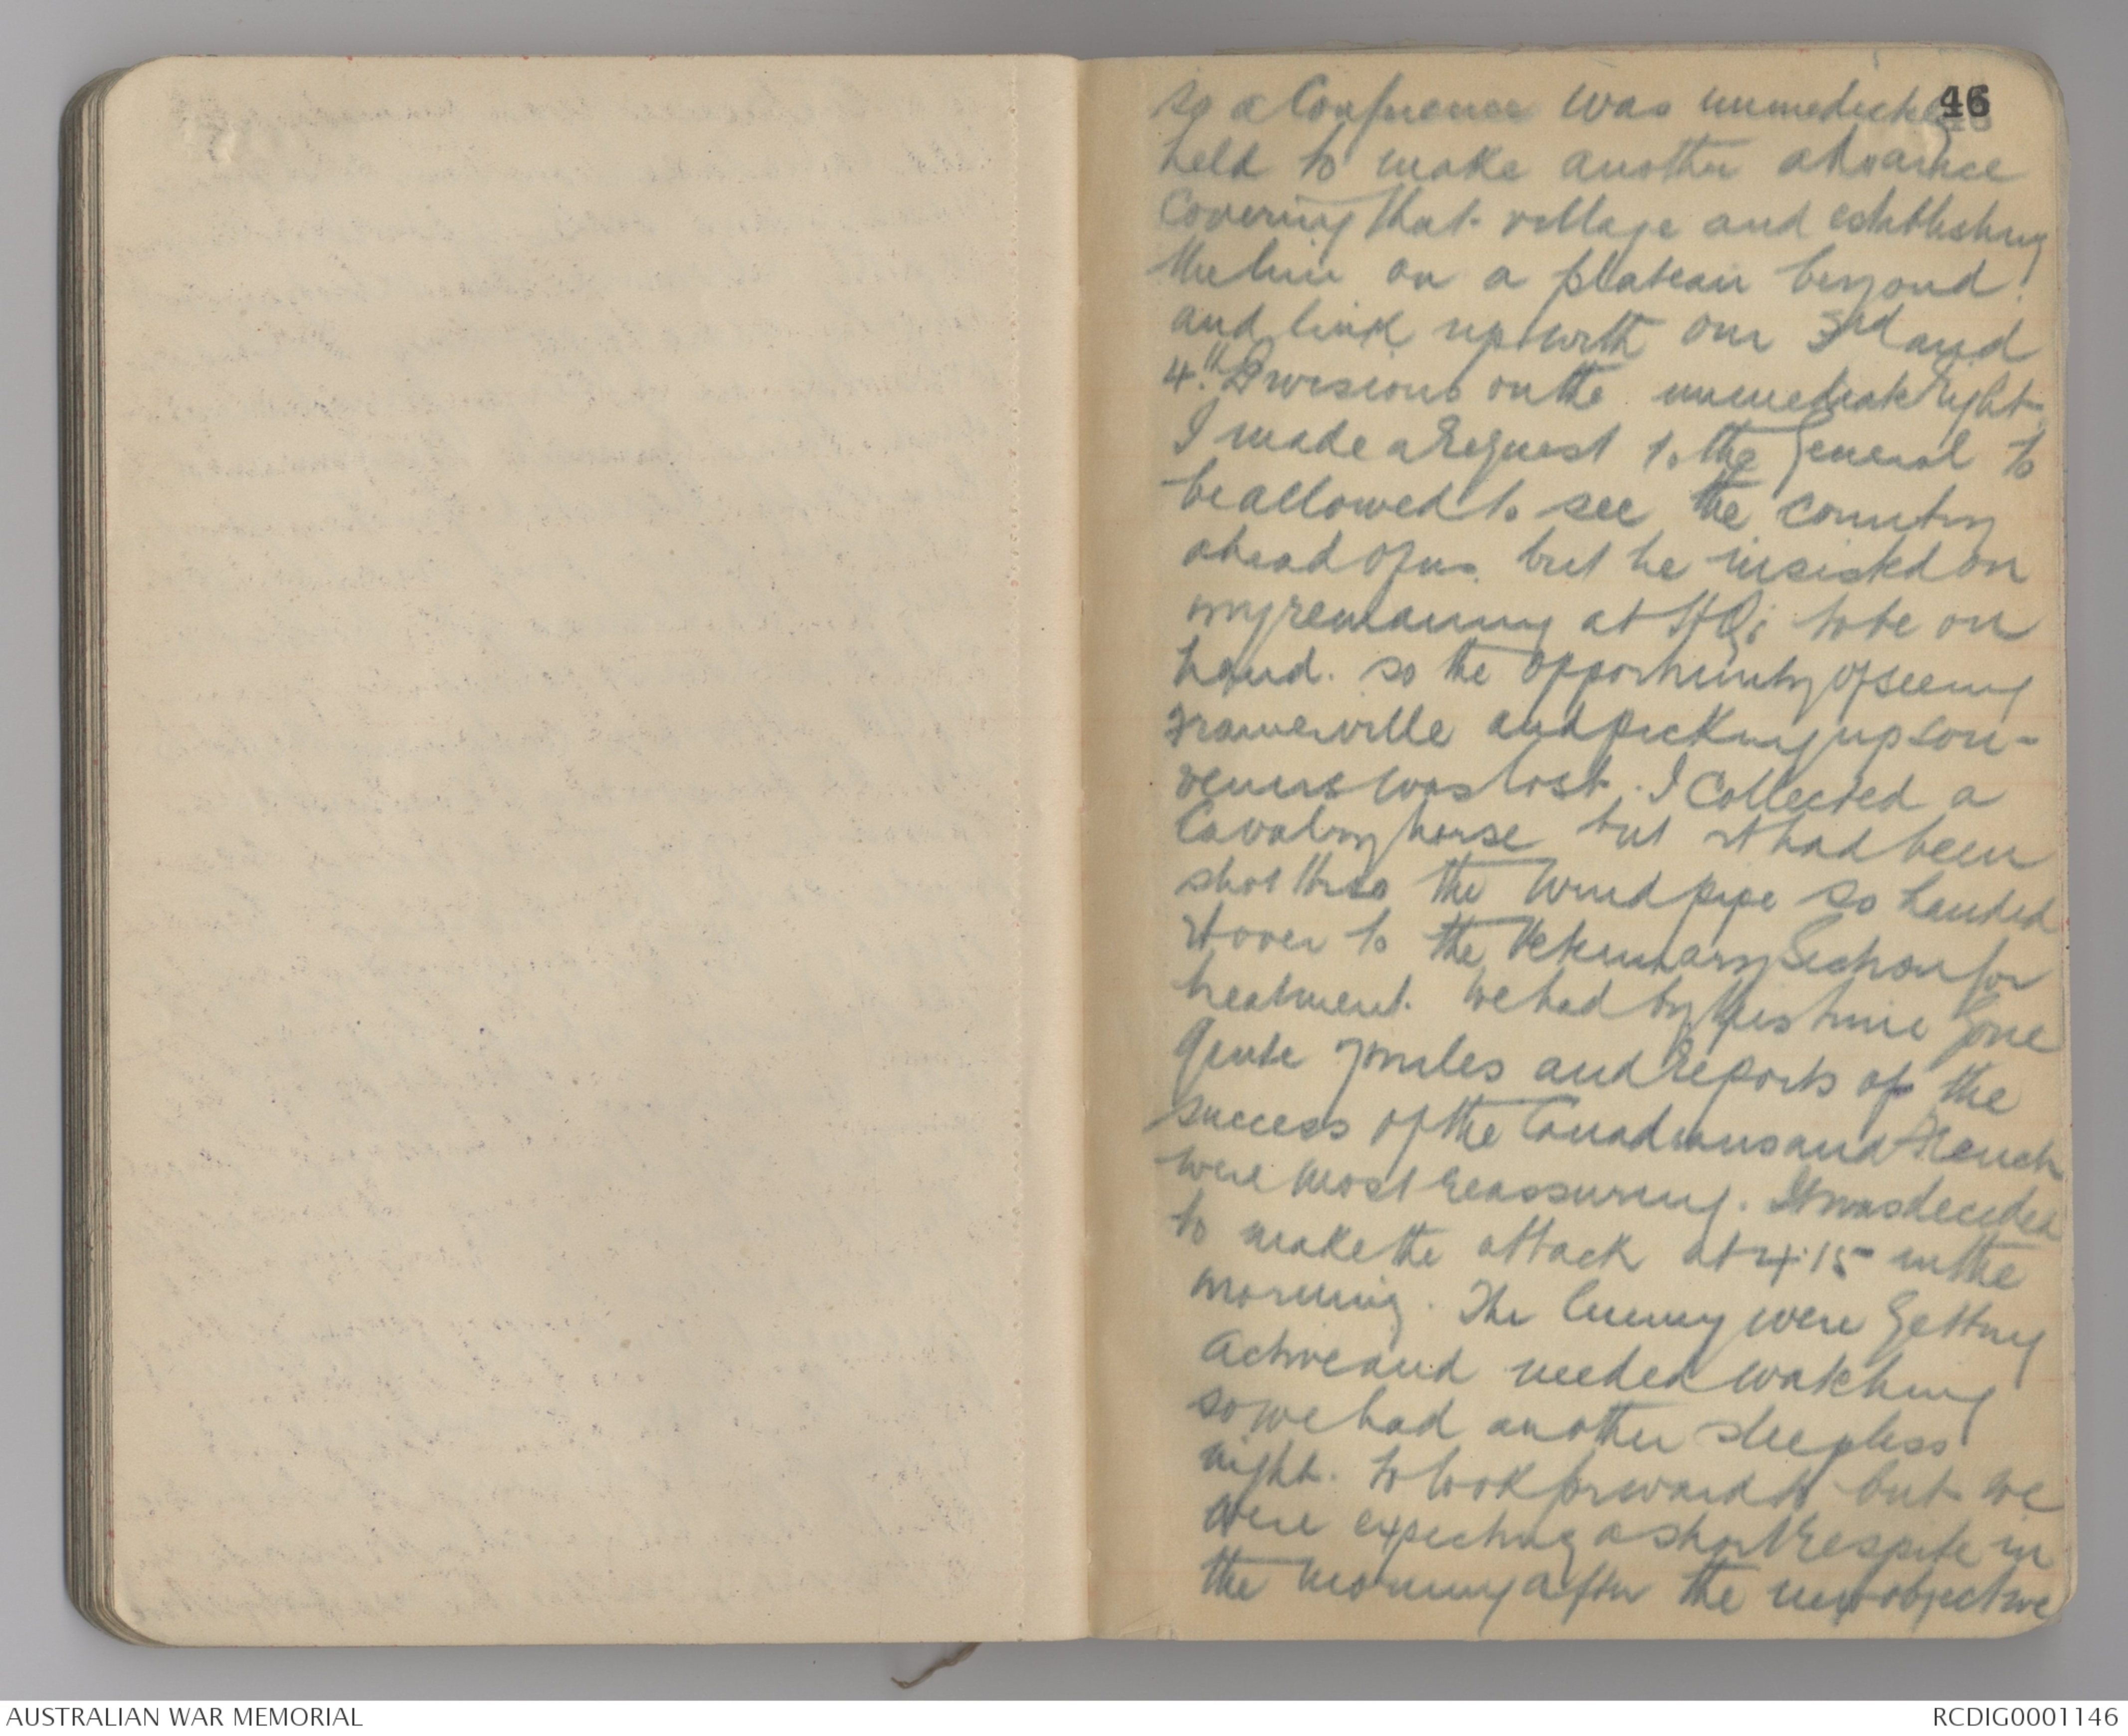 46
so a Conference was immediately
held to make another advance
covering that village and establishing
the line on a plateau beyond.
and link up with our 3rd and
4th Divisions on the immediate right.
I made a request to the General to
be allowed to see the country
ahead of us but he insisted on
my remaining at HQs to be on
hand. so the opportunity of seeing
Framerville and picking up sou-
venirs was lost. I collected a
Cavalry horse but it had been
shot thro the Wind pipe so handed
it over to the Veterinary Section for
treatment. We had by this time gone
quite 7 miles and reports of the
success of the Canadians and French
were most reassuring. It was decided
to make the attack at 4.15 in the
morning. The Enemy were getting
active and needed watching
so we had another sleepless
night. to look forward to but we
were expecting a short respite in
the morning after the new objective
AUSTRALIAN WAR MEMORIAL
RCDIG0001146